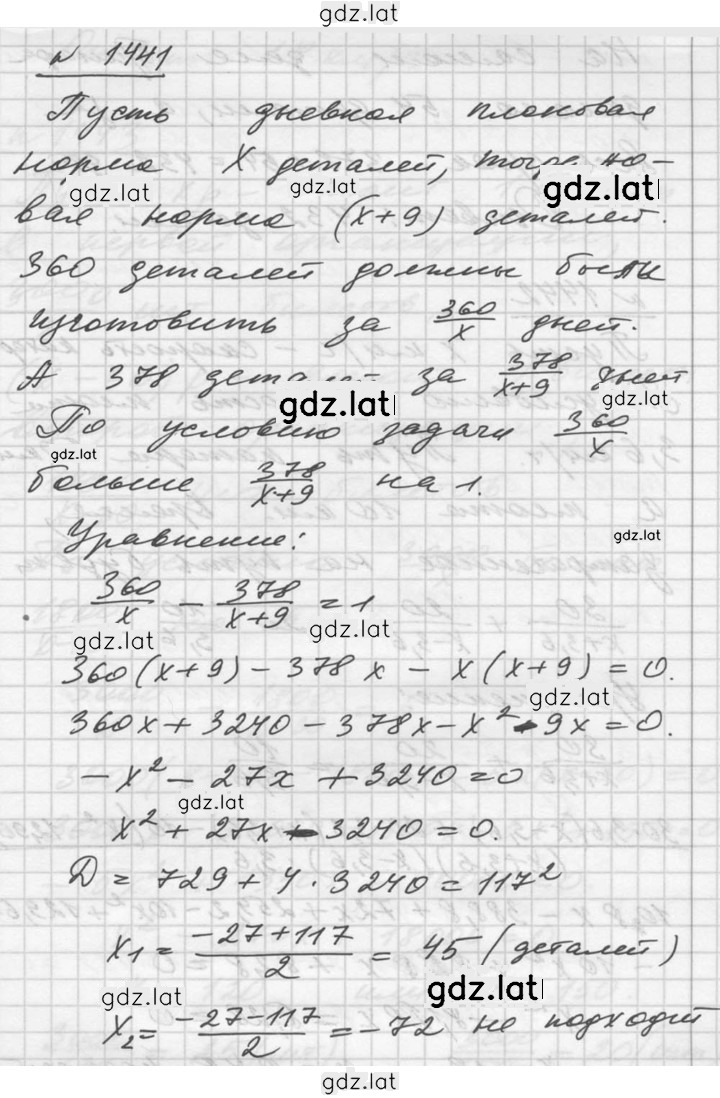 gdz.lat
№ 1441
Пусть дневная плановая
норма X деталей, тогда но-
gdz.lat gdz.lat gdz.lat
вая норма (x+9) деталей.
360 деталей должны были
изготовить за 360/x дней.
А 378 деталей за 378/(x+9) дней
gdz.lat gdz.lat
По условию задачи 360/x
gdz.lat
больше 378/(x+9) на 1.
Уравнение:
gdz.lat
360/x - 378/(x+9) = 1
gdz.lat gdz.lat
360(x+9) - 378x - x(x+9) = 0.
gdz.lat
360x + 3240 - 378x - x² - 9x = 0.
-x² - 27x + 3240 = 0
gdz.lat
x² + 27x - 3240 = 0.
D = 729 + 4·3240 = 117²
x₁ = (-27+117)/2 = 45 (деталей)
gdz.lat gdz.lat
x₂ = (-27-117)/2 = -72 не подходит
gdz.lat